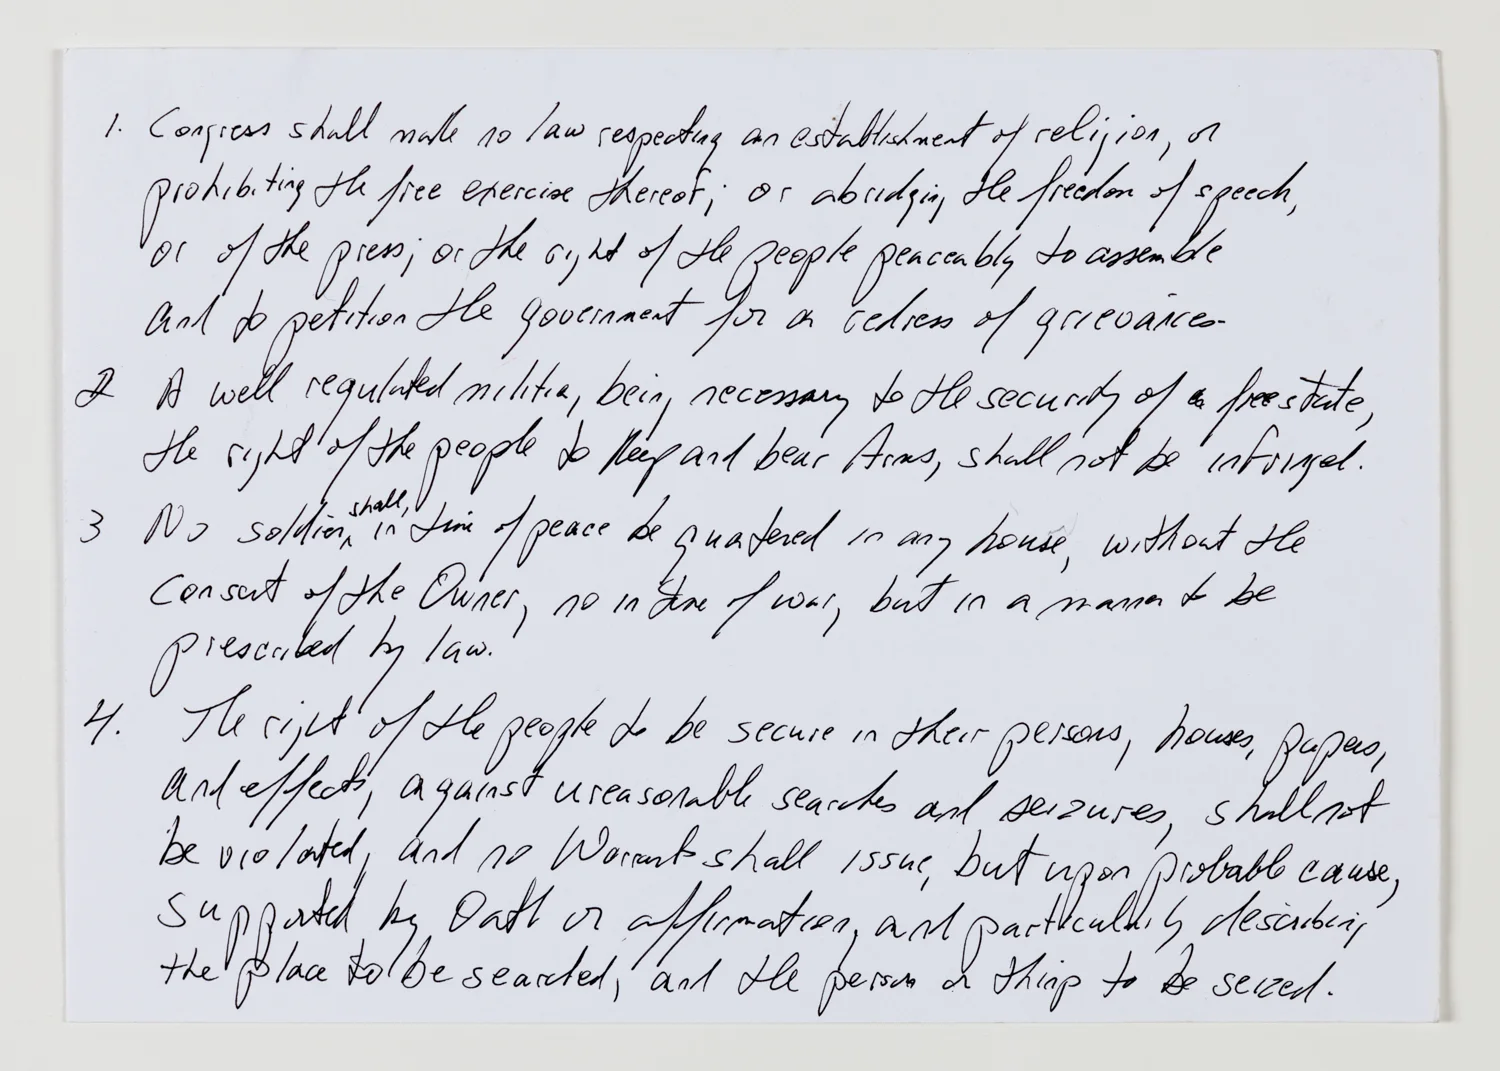 1. Congress shall make no law respecting an establishment of religion, or
prohibiting the free exercise thereof; or abridging the freedom of speech,
or of the press; or the right of the people peaceably to assemble
and to petition the government for a redress of grievances.
2 A well regulated militia, being necessary to the security of a free state,
the right of the people to keep and bear Arms, shall not be infringed.
3 No soldier, shall, in time of peace be quartered in any house, without the
Consent of the Owner, no in time of war, but in a manner to be
prescribed by law.
4. The right of the people to be secure in their persons, houses, papers,
and effects, against unreasonable searches and seizures, shall not
be violated, and no Warrants shall issue, but upon probable cause,
supported by Oath or affirmation, and particularly describing
the place to be searched, and the person or things to be seized.